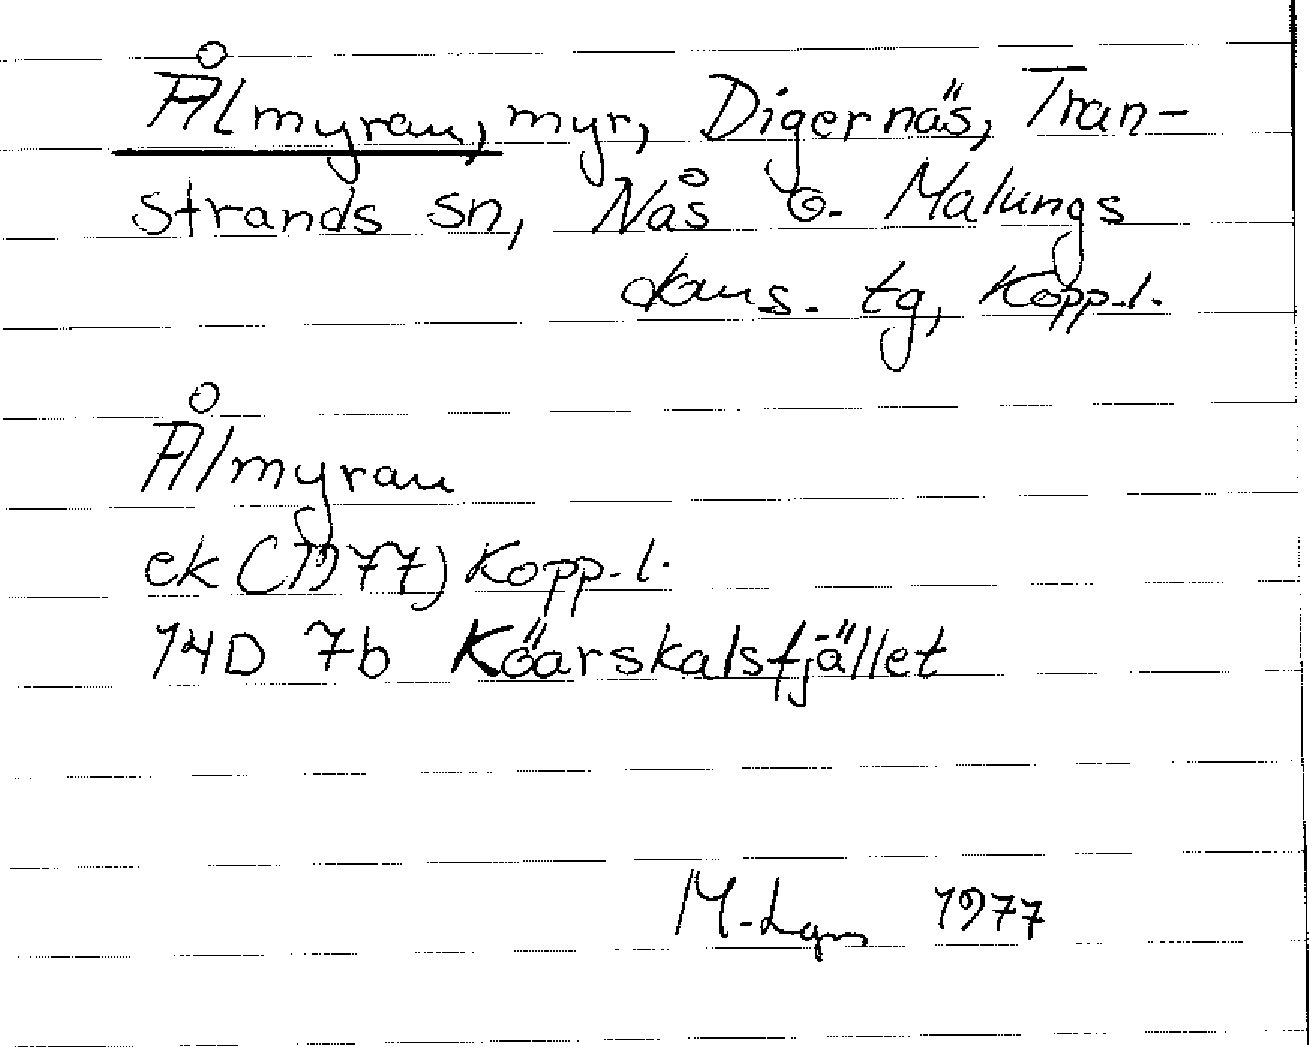 Ålmyran, myr, Digernäs, Tran-
strands sn, Nås o. Malungs
doms. tg, Kopp. l.
Ålmyran
ek (1977) Kopp. l.
14D 7b Köarskalsfjället
M. Lgn 1977